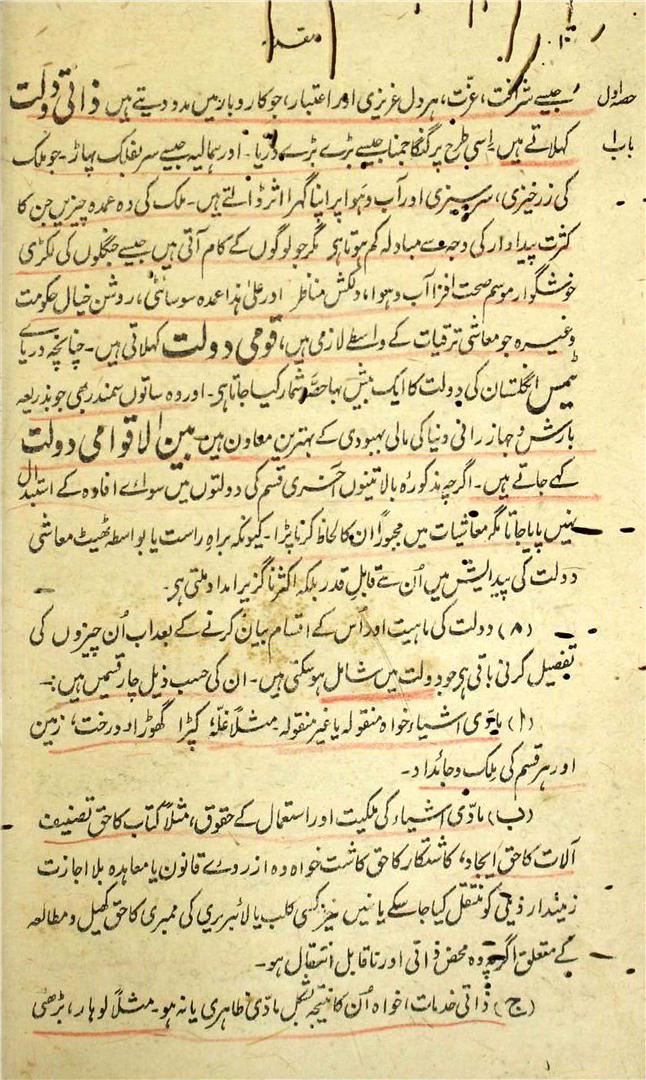 مقدمہ
۱۰
حصہ اول
باب ۱
جیسے شرافت، عزّت، ہر دل عزیزی اور اعتبار، جو کاروبار میں مدد دیتے ہیں ذاتی دولت
کہلاتے ہیں۔ اسی طرح پر گنگا جمنا جیسے بڑے بڑے دریا۔ اور ہمالیہ جیسے سربفلک پہاڑ۔ جو ملک
کی زرخیزی، سرسبزی اور آب و ہوا پر اپنا گہرا اثر ڈالتے ہیں۔ ملک کی وہ عمدہ چیزیں جن کا
کثرت پیداوار کی وجہ سے مبادلہ کم ہوتا ہی مگر جو لوگوں کے کام آتی ہیں جیسے جنگلوں کی لکڑی
خوشگوار موسم صحت افزا آب و ہوا، دلکش مناظر اور علیٰ ہذا عمدہ سوسائٹی، روشن خیال حکومت
وغیرہ جو معاشی ترقیات کے واسطے لازمی ہیں، قومی دولت کہلاتی ہیں۔ چنانچہ دریائے
ٹیمس انگلستان کی دولت کا ایک بیش بہا حصّہ شمار کیا جاتا ہی۔ اور وہ ساتوں سمندر بھی جو بذریعہ
بارش و جہاز رانی دنیا کی مالی بہبودی کے بہترین معاون ہیں۔ بین الاقوامی دولت
کہے جاتے ہیں۔ اگرچہ مذکورہ بالا تینوں آخری قسم کی دولتوں میں سوائے افادہ کے استبدال
نہیں پایا جاتا مگر معاشیات میں مجبوراً ان کا لحاظ کرنا پڑا۔ کیونکہ براہِ راست یا بواسطہ ٹھیٹ معاشی
دولت کی پیدایش میں اُن سے قابلِ قدر بلکہ اکثر ناگزیر امداد ملتی ہی۔
(۸) دولت کی ماہیت اور اُس کے اقسام بیان کرنے کے بعد اب اُن چیزوں کی
تفصیل کرنی باقی ہی جو دولت میں شامل ہوسکتی ہیں۔ ان کی حسب ذیل چار قسمیں ہیں:۔
(ا) مادّی اشیاء خواہ منقولہ یا غیر منقولہ۔ مثلاً غلّہ، کپڑا گھوڑا اور درخت، زمین
اور ہر قسم کی ملک و جائداد۔
(ب) مادّی اشیاء کی ملکیت اور استعمال کے حقوق، مثلاً کتاب کا حق تصنیف
آلات کا حق ایجاد، کاشتکار کا حق کاشت خواہ وہ از روے قانون یا معاہدہ بلا اجازت
زمیندار ذیلی کو منتقل کیا جاسکے یا نہیں نیز کسی کلب یا لائبریری کی ممبری کا حق کھیل و مطالعہ
کے متعلق اگرچہ وہ محض ذاتی اور ناقابل انتقال ہو۔
(ج) ذاتی خدمات، خواہ اُن کا نتیجہ بشکل مادّی ظاہری یا نہ ہو۔ مثلاً لوہار، بڑھئی